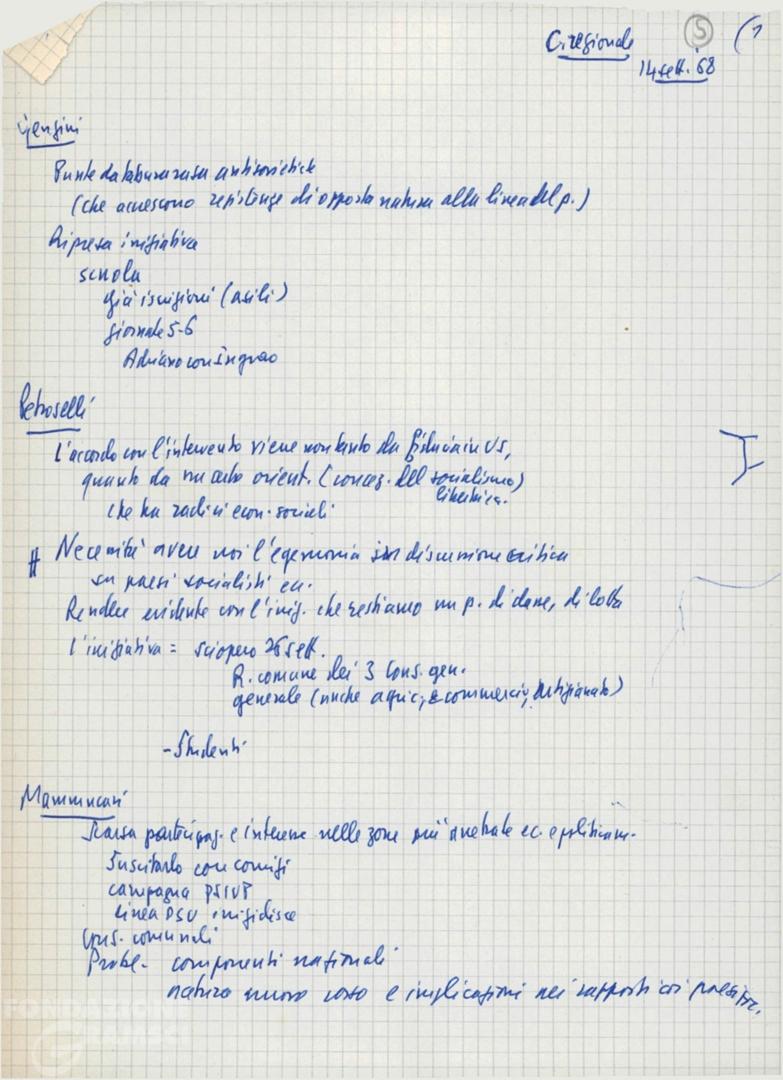 C. regionale
5
(1
14 sett. '68
Gensini
Punte da tabula rasa antisovietiche
(che accrescono resistenze di opposta natura alla linea del p.)
Ripresa iniziativa
scuola
già iscrizioni (asili)
giornate 5-6
Adriano con Ingrao
Petroselli
L'accordo con l'intervento viene non tanto da fiducia in US,
quanto da un certo orient. (concez. del socialismo)
che ha radici econ. sociali
# Necessità avere noi l'egemonia in discussione critica
su paesi socialisti ecc.
Rendere evidente con l'iniz. che restiamo un p. di classe, di lotta
L'iniziativa = sciopero 26 sett.
R. comune dei 3 Cons. gen.
generale (anche agric., commercio, artigianato)
- Studenti
Mammucari
Scarsa partecipaz. e interesse nelle zone più arretrate ec. e politicam.
Suscitarlo con comizi
campagna PSIUP
linea PSU irrigidisce
Cons. comunali
Probl. componenti nazionali
natura nuovo corso e implicazioni nei rapporti coi paesi
FONDAZIONE
GRAMSCI